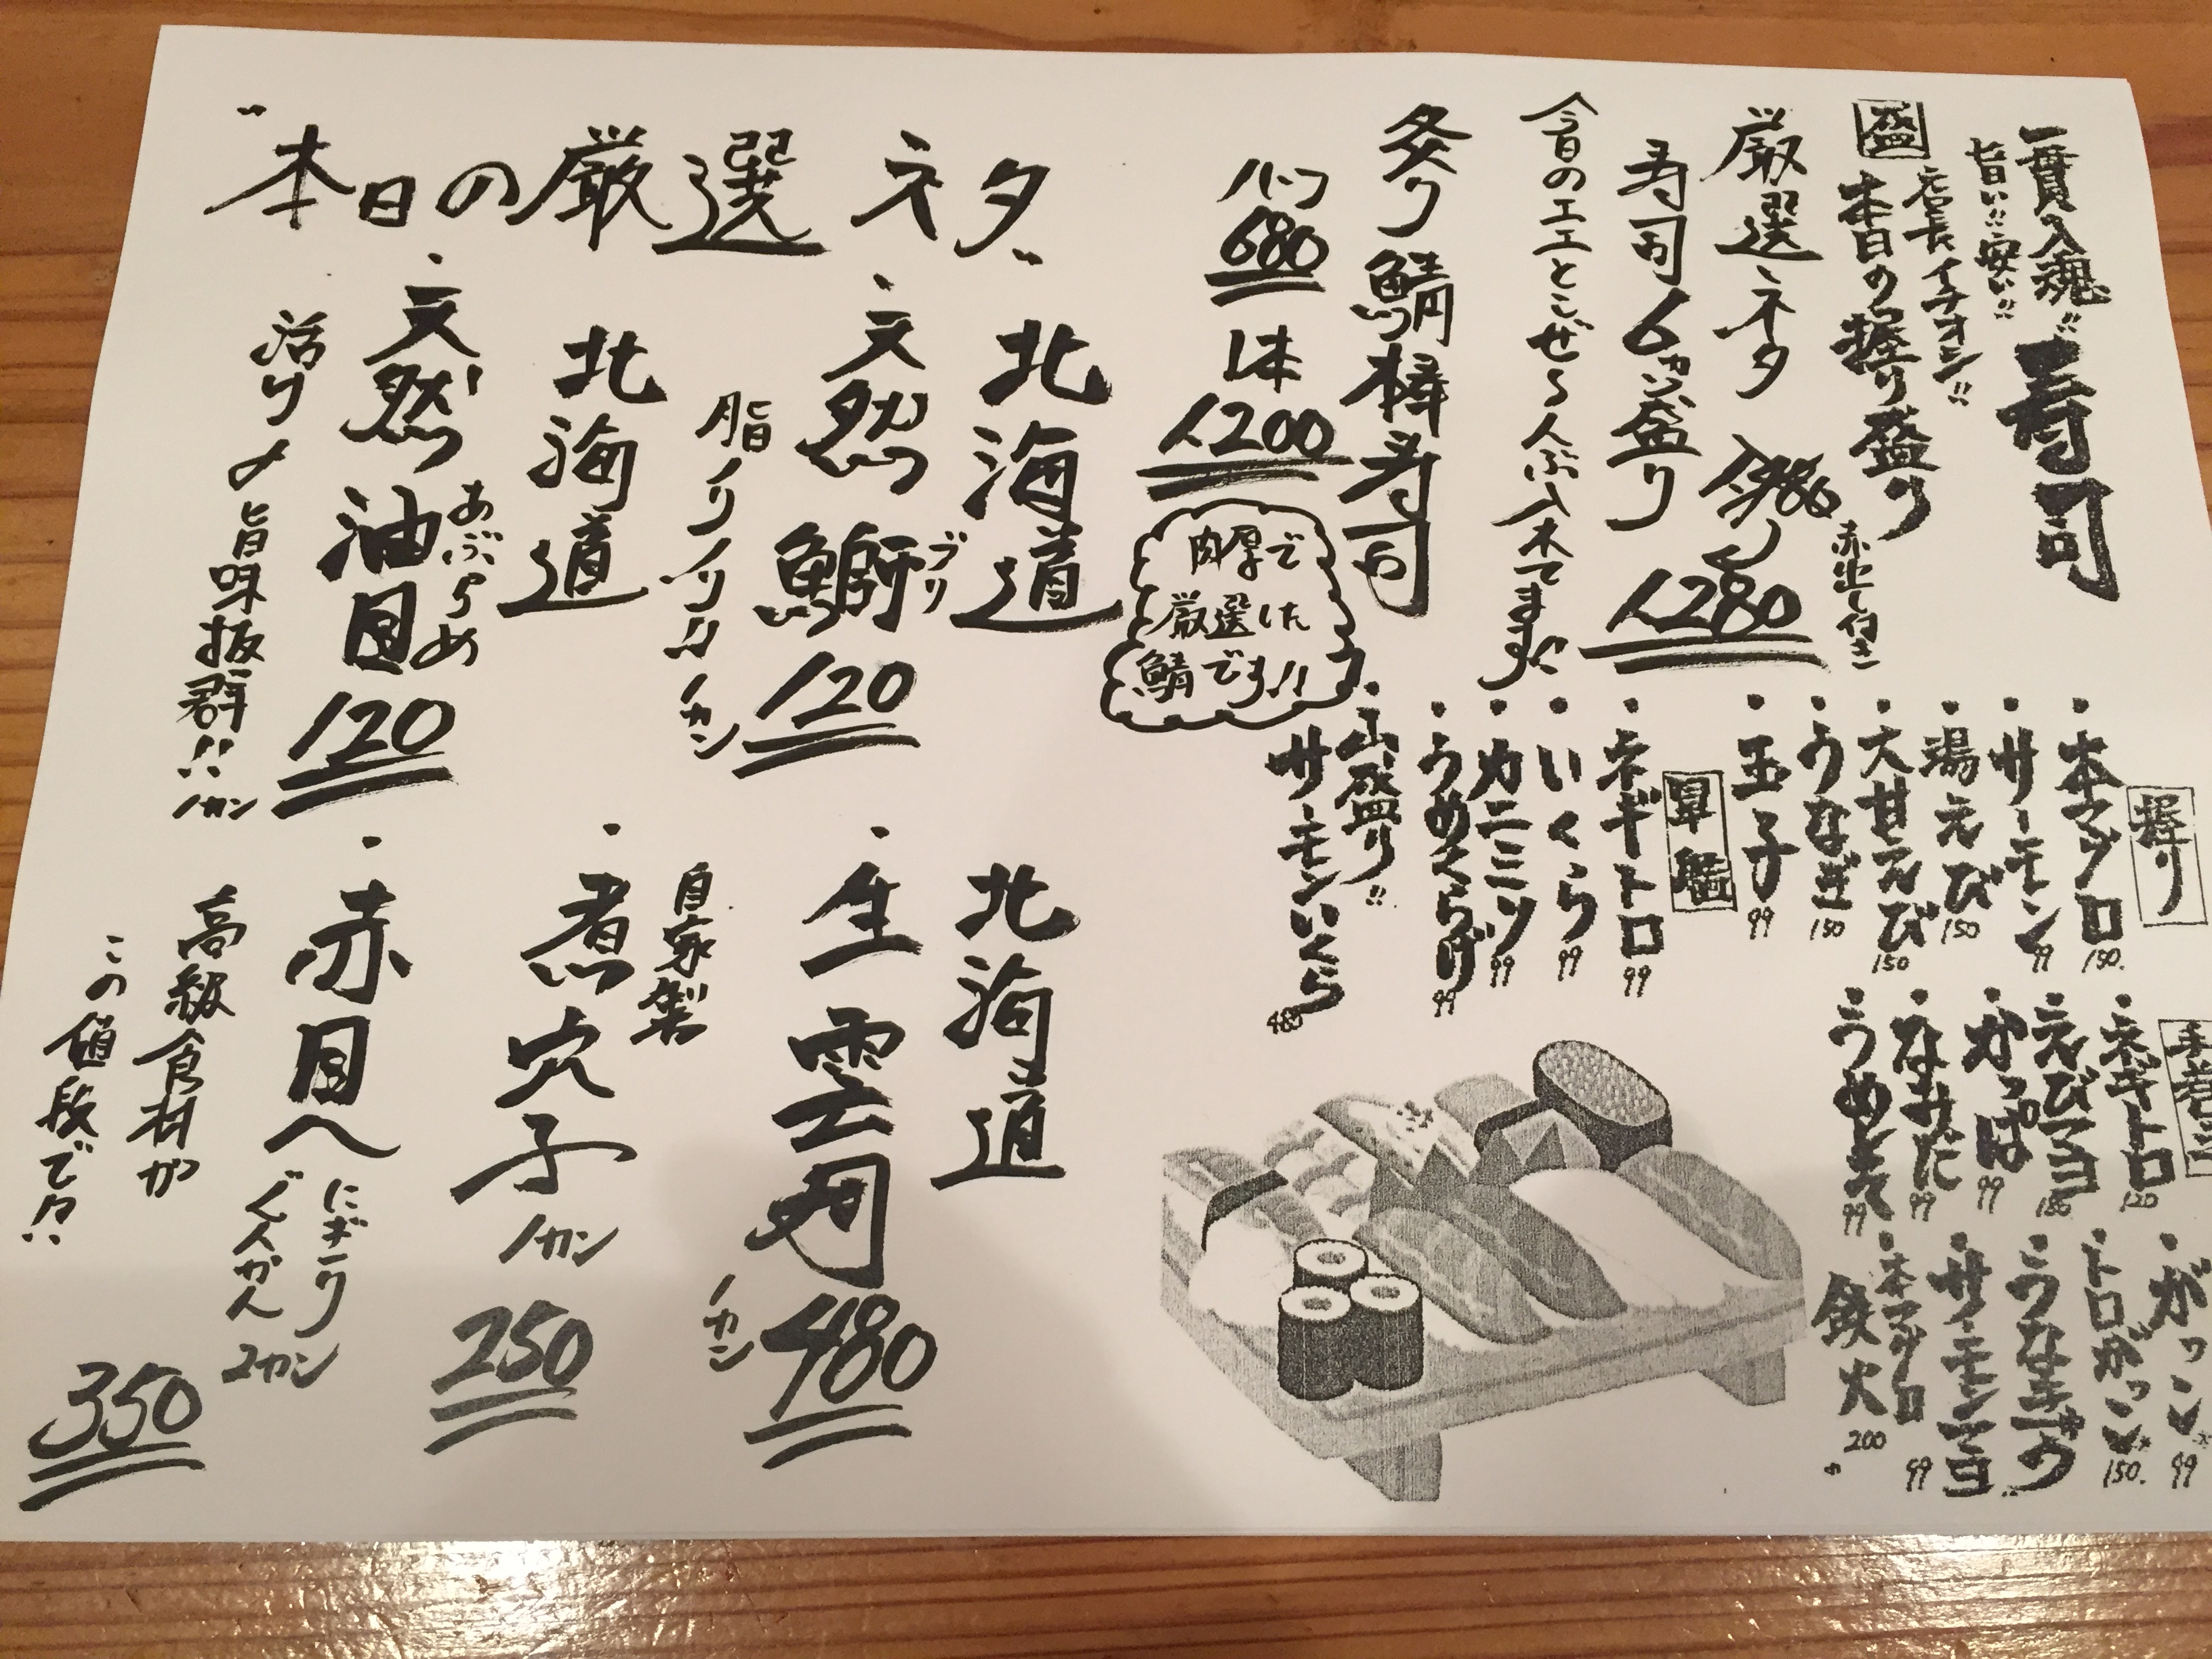 一貫入魂!! 寿司
旨い!! 安い!!
店長イチオシ!!
盛 本日の握り盛り
赤出し付き
厳選ネタ
寿司6カン盛り 1280
今日のエエとこぜ〜んぶ入れてます!!
炙り鯖棒寿司
ハーフ 680 1本 1200
肉厚で
厳選した
鯖です!!
握り
・本マグロ 150
・サーモン 99
・湯えび 150
・大甘えび 150
・うなぎ 150
・玉子 99
軍艦
・ネギトロ 99
・いくら 99
・カニミソ 99
・うめくらげ 99
・山盛り!!
サーモンいくら 480
手巻き
・ネギトロ 120
・えびマヨ 180
・かっぱ 99
・なみだ 99
・うめしそ 99
・がっつり 99
・トロがっつり 150
・うなきゅう
・サーモンマヨ 99
・本マグロ
鉄火 200
"本日の厳選ネタ"
北海道
・天然 鰤 ブリ 120
脂ノリノリ!! 1カン
北海道
・天然 油目 あぶらめ 120
活〆 旨味抜群!! 1カン
北海道
・生雲丹 1カン 480
自家製
・煮穴子 1カン 250
・赤目へ
にぎり
ぐんかん 2カン
高級食材が
この値段で!!
350